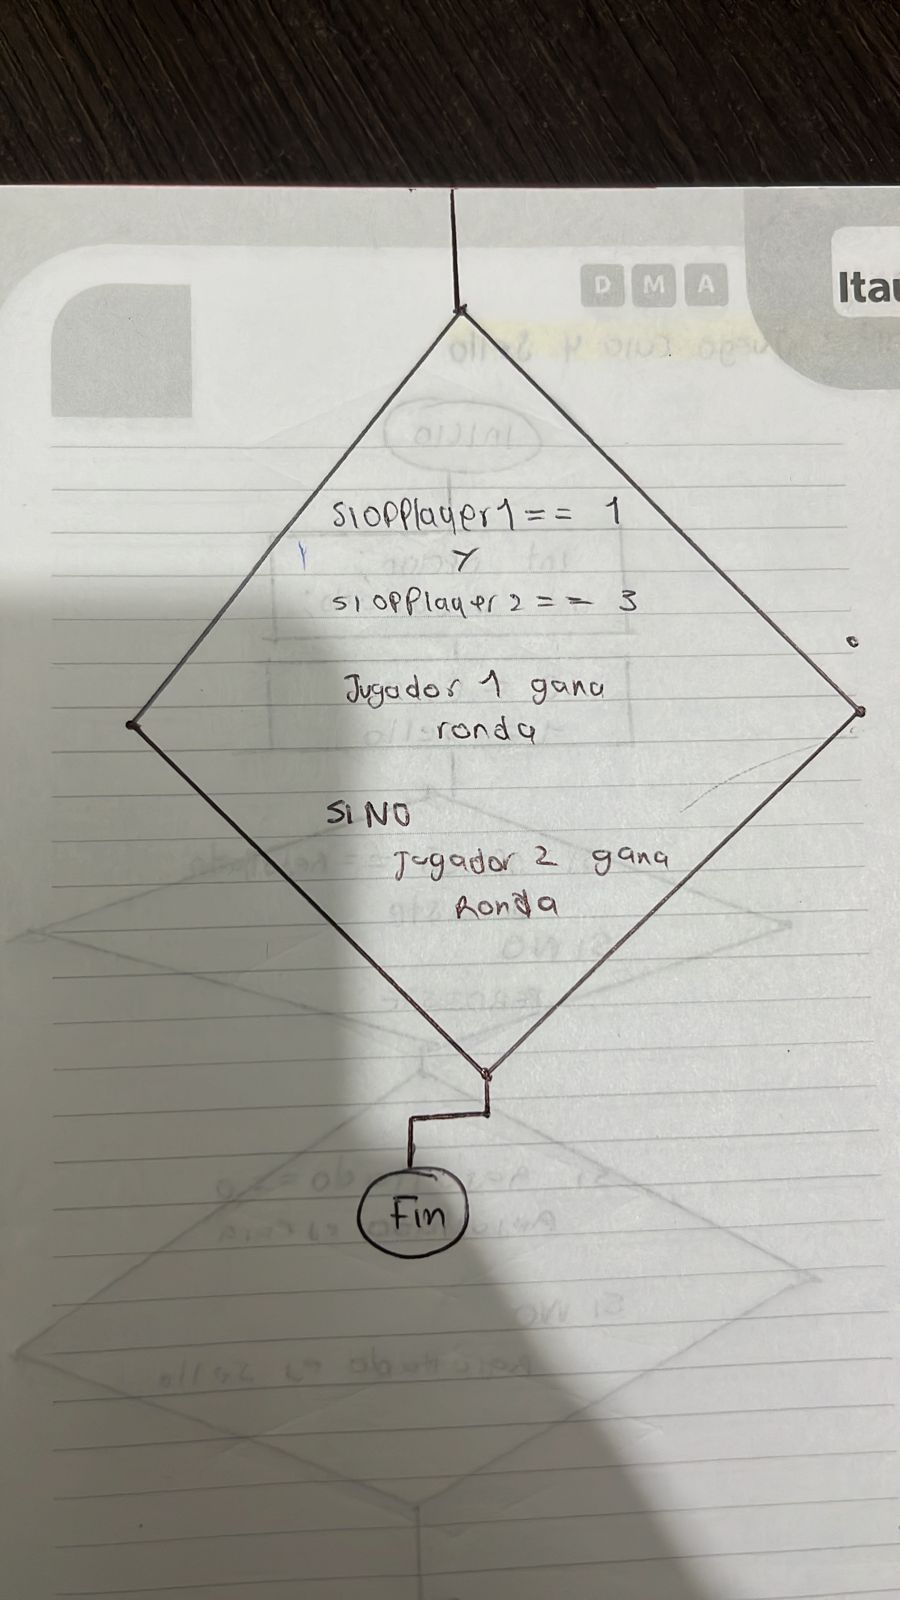 D M A
Itau
SI OPPlayer 1 == 1
Y
SI OPPlayer 2 == 3
Jugador 1 gana
ronda
SI NO
Jugador 2 gana
Ronda
Fin